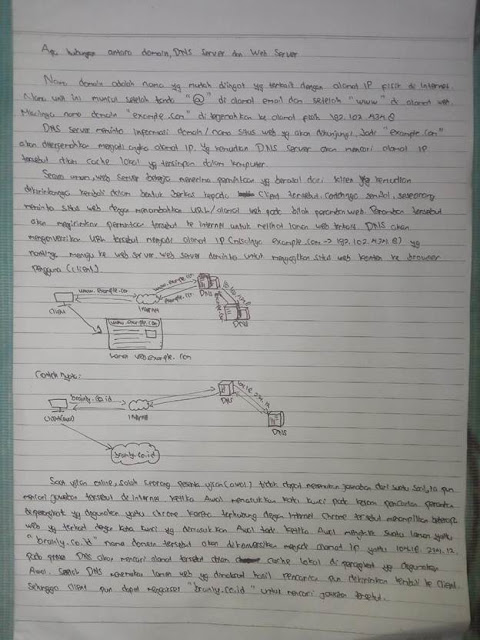 Apa hubungan antara domain, DNS server dan Web Server
Nama domain adalah nama yg mudah diingat yg terkait dengan alamat IP fisik di Internet.
Nama unik ini muncul setelah tanda "@" di alamat email dan setelah "www" di alamat web.
Misalnya nama domain "example.com" di terjemahkan ke alamat fisik 192.102.434.8
DNS server meminta informasi domain/nama situs web yg akan dikunjungi. Jadi "example.com"
akan diterjemahkan menjadi angka alamat IP. Yg kemudian DNS server akan mencari alamat IP
tersebut dalam cache lokal yg tersimpan dalam komputer.
Secara umum, web server bekerja menerima permintaan yg berasal dari klien yg kemudian
dikirimkannya kembali dalam bentuk berkas kepada client tersebut. Contohnya
meminta situs web dengan menambahkan URL/alamat web pada bilah peramban web. Peramban tersebut
akan mengirimkan permintaan tersebut ke Internet untuk melihat laman web tertentu. DNS akan
mengonversikan URL tersebut menjadi alamat IP (misalnya example.com -> 192.102.434.8) yg
nantinya menuju ke web server. web server diminta untuk menyajikan situs web konten ke browser
pengguna (client)
www.example.com
example.com
DNS
Client
Internet
DNS
www.example.com
laman web example.com
Contoh Nyata:
brainly.co.id
DNS
104.16.214.12
Client (Awal)
Internet
DNS
brainly.co.id
Saat ujian online, salah seorang peserta ujian (awal) tidak dapat menemukan jawaban dari suatu soal, Ia pun
mencari jawaban tersebut di internet. ketika Awal memasukkan kata kunci pada kolom pencarian peramban
diperangkat yg digunakan yaitu chrome karena terhubung dengan Internet chrome tersebut menampilkan beberapa
web yg terkait dengan kata kunci yg dimasukkan Awal tadi. ketika Awal mengklik suatu laman yaitu
"brainly.co.id" nama domain tersebut akan dikonversikan menjadi alamat IP yaitu 104.16.214.12.
Pada proses DNS akan mencari alamat tersebut dalam cache lokal di perangkat yg digunakan
Awal. Setelah DNS menemukan laman web yg dimaksud hasil pencarian pun dikirimkan kembali ke client.
Sehingga client pun dapat mengakses "brainly.co.id" untuk mencari jawaban tersebut.